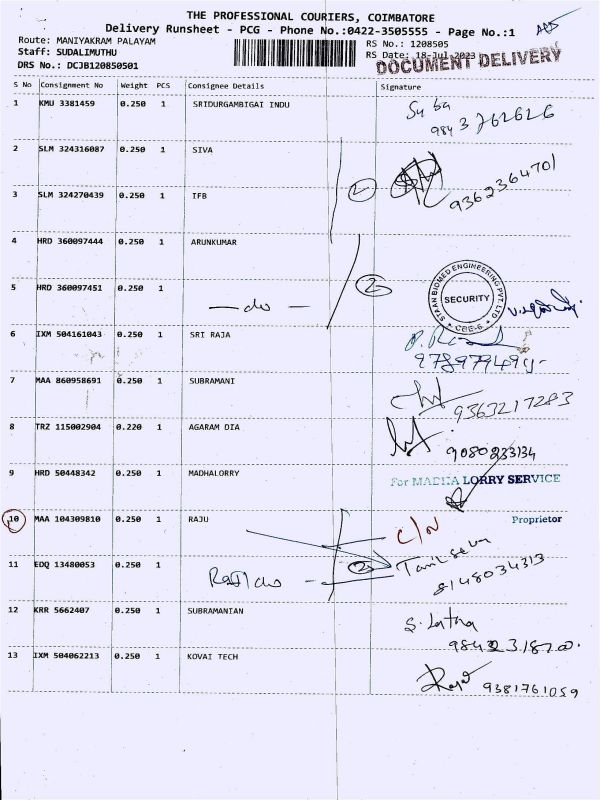 THE PROFESSIONAL COURIERS, COIMBATORE
Delivery Runsheet - PCG - Phone No.:0422-3505555 - Page No.:1
Route: MANIYAKRAM PALAYAM
RS No.: 1208505
Staff: SUDALIMUTHU
RS Date: 18-Jul-2023
DRS No.: DCJB120850501
DOCUMENT DELIVERY
S No Consignment No Weight PCS Consignee Details Signature
1 KMU 3381459 0.250 1 SRIDURGAMBIGAI INDU
Suba
9843762626
2 SLM 324316087 0.250 1 SIVA
9362364701
3 SLM 324270439 0.250 1 IFB
2
4 HRD 360097444 0.250 1 ARUNKUMAR
2
5 HRD 360097451 0.250 1
— do —
STAAN BIOMED ENGINEERING PVT. LTD
SECURITY
CBE-6
6 IXM 504161043 0.250 1 SRI RAJA
7 MAA 860958691 0.250 1 SUBRAMANI
9363217283
8 TRZ 115002904 0.220 1 AGARAM DIA
9080233134
9 HRD 50448342 0.250 1 MADHALORRY
For MADHA LORRY SERVICE
Proprietor
10 MAA 104309810 0.250 1 RAJU
C/N
11 EDQ 13480053 0.250 1
do —
2
Tamil selvi
8148034313
12 KRR 5662407 0.250 1 SUBRAMANIAN
S. Latha
13 IXM 504062213 0.250 1 KOVAI TECH
9381761059